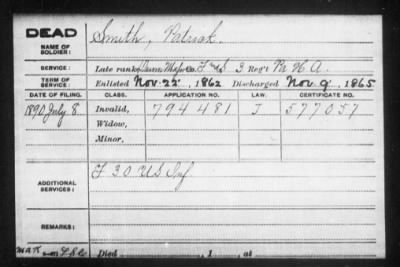 DEAD
NAME OF SOLDIER: Smith, Patrick.
SERVICE: Late rank, Co. F 3 Reg't Pa H A.
TERM OF SERVICE: Enlisted Nov 22, 1862 Discharged Nov 9, 1865
DATE OF FILING. CLASS. APPLICATION NO. LAW. CERTIFICATE NO.
1890 July 8. Invalid, 794481 J 577057
Widow,
Minor,
ADDITIONAL SERVICES: F 30 US Inf
REMARKS:
Died , 1 , at